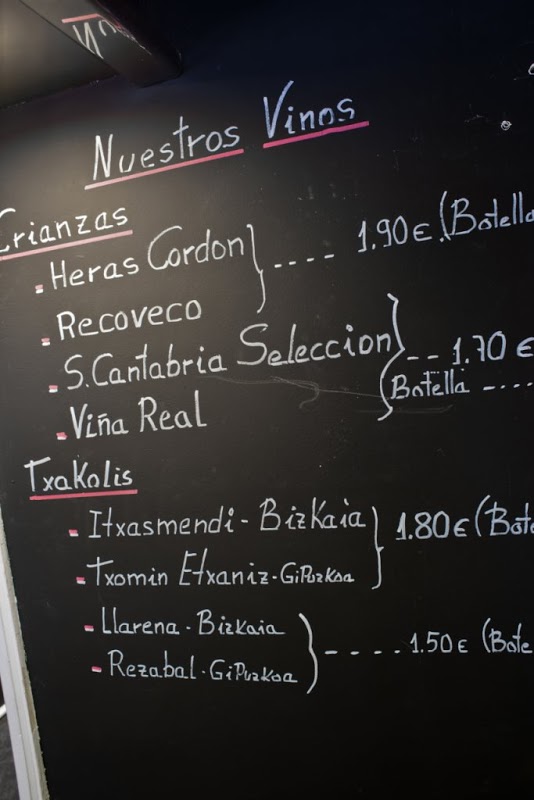 Nuestros Vinos
Crianzas
Heras Cordon } ---- 1.90€ (Botella
Recoveco
S. Cantabria Seleccion } -- 1.70€
Botella ----
Viña Real
Txakolis
Itxasmendi - Bizkaia } 1.80€ (Bot
Txomin Etxaniz - GiPuzkoa
Llarena - Bizkaia } ---- 1.50€ (Bote
Rezabal - GiPuzkoa